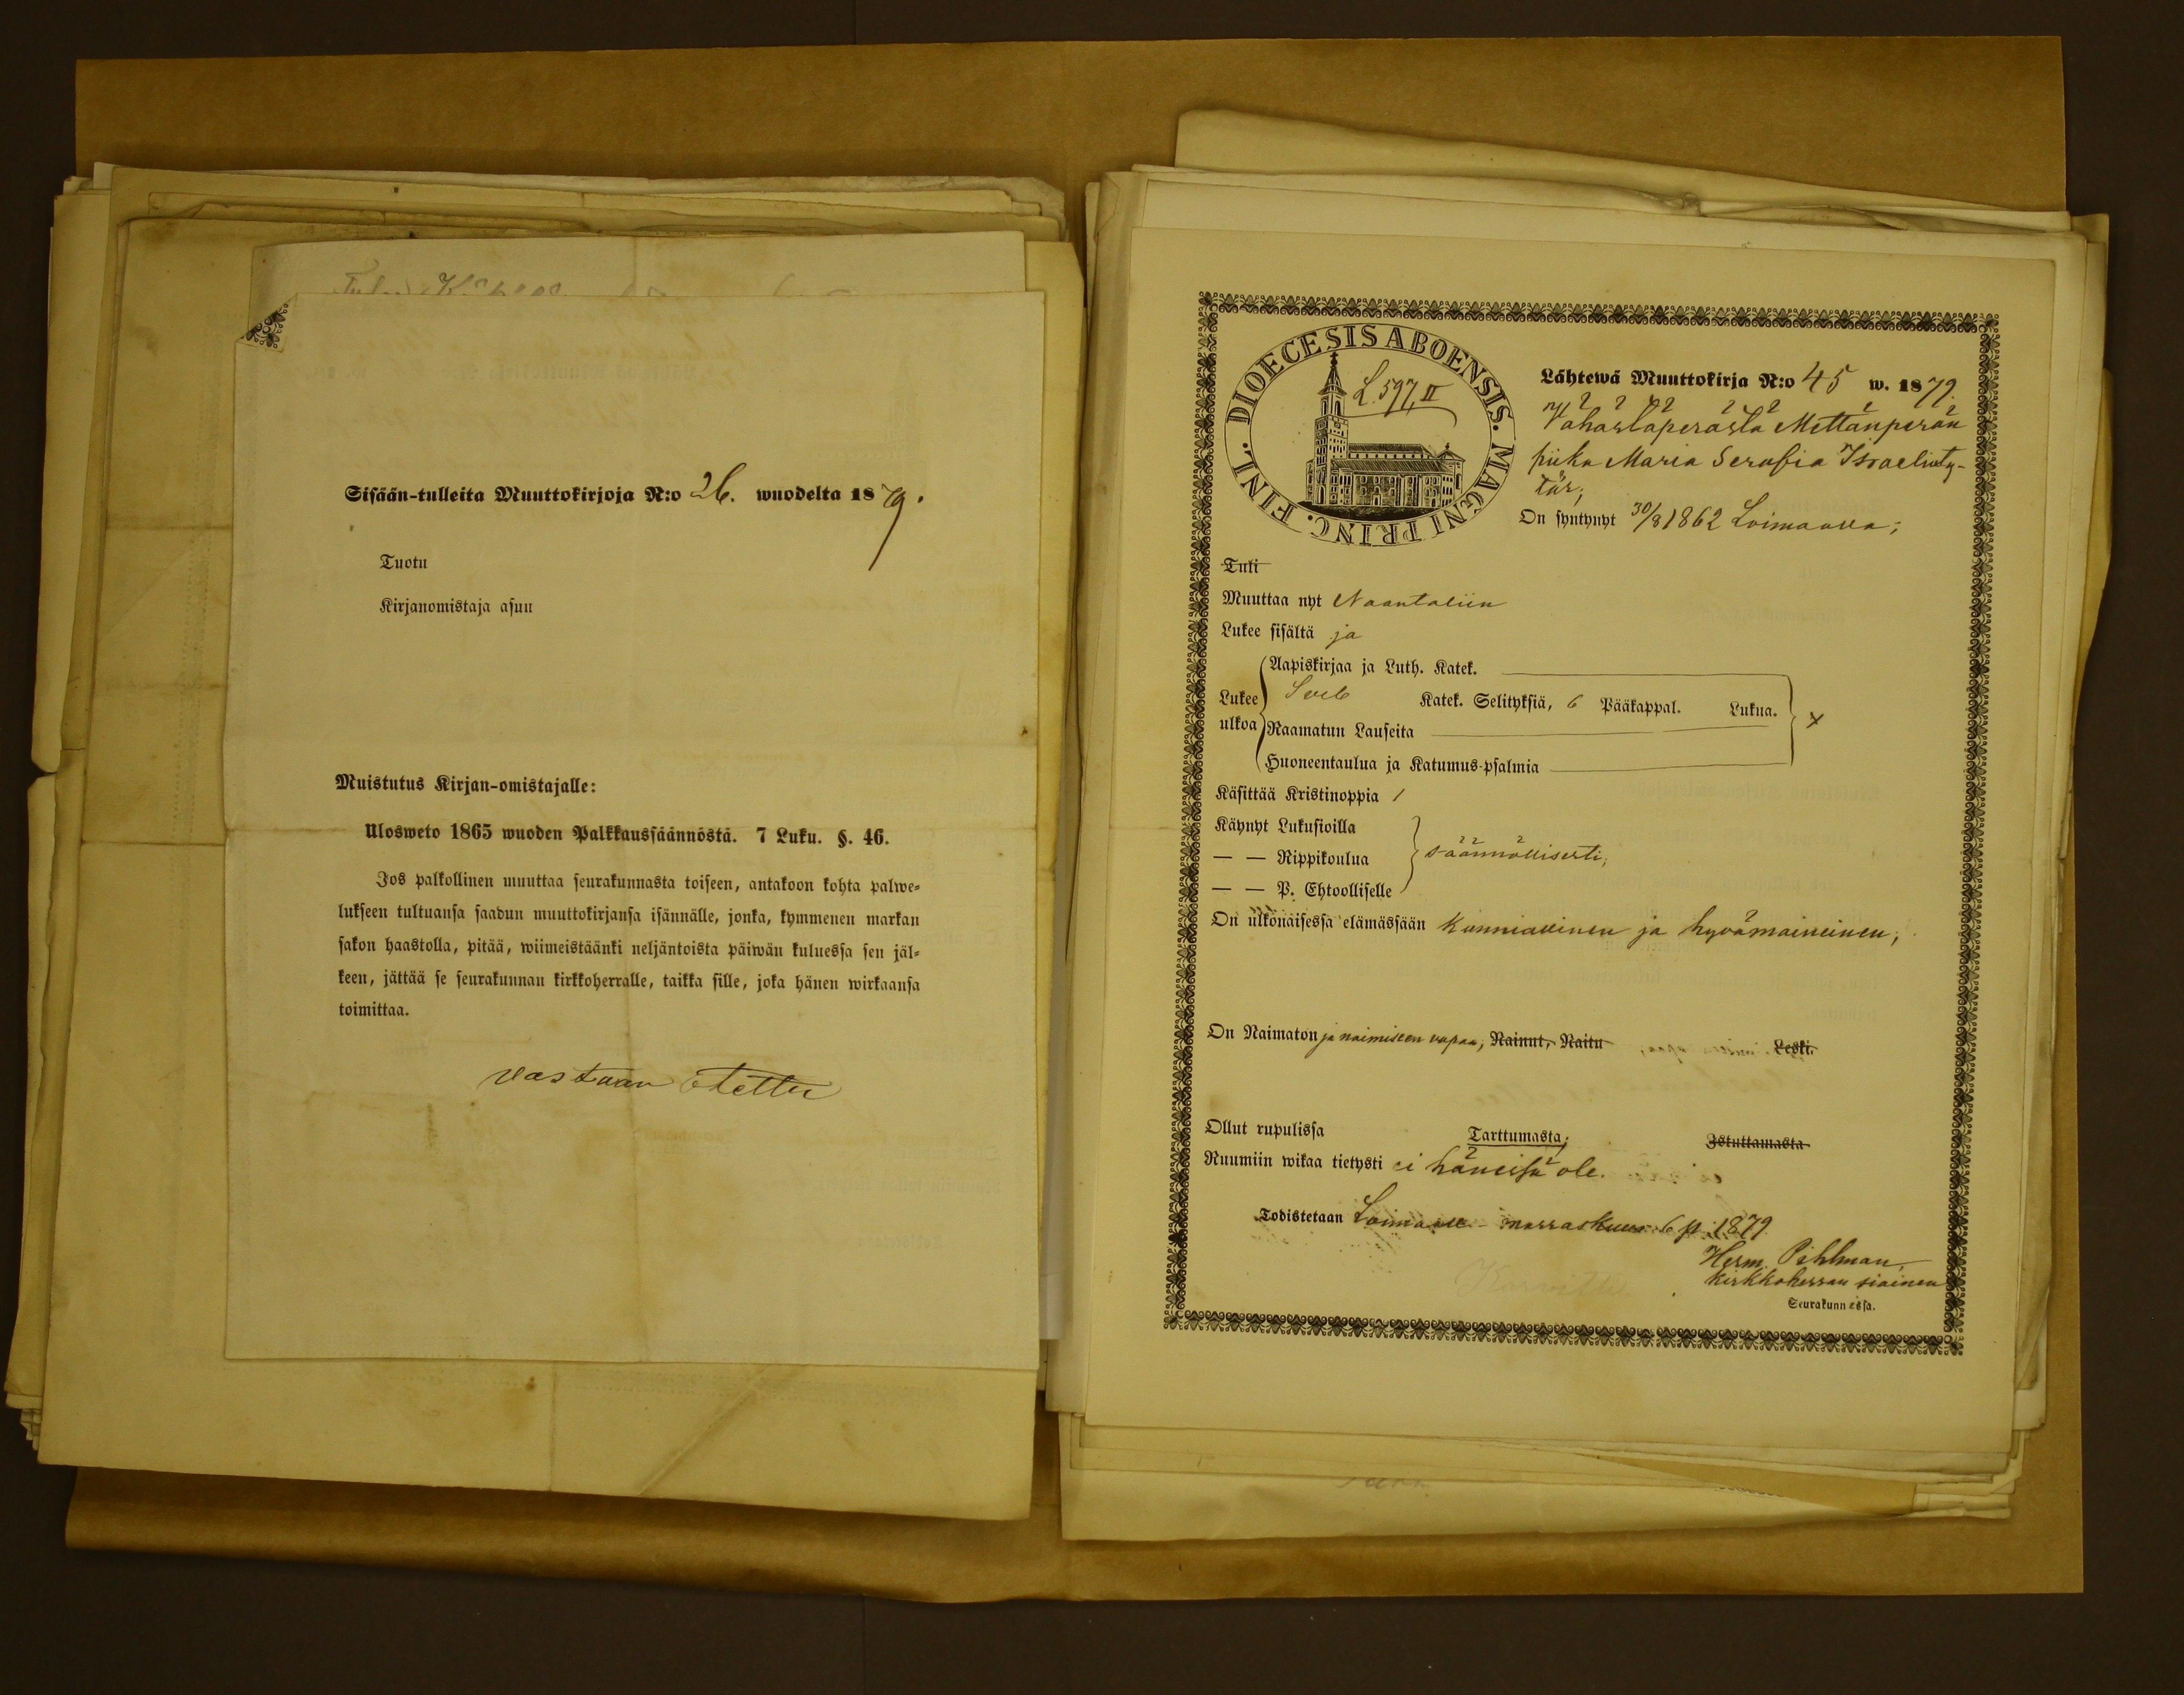 Sisään-tulleita Muuttokirjoja N:o 26. wuodelta 1879.
Tuotu
Kirjanomistaja asuu
Muistutus Kirjan-omistajalle:
Ulosweto 1865 wuoden Palkkaussäännöstä. 7 Luku. §. 46.
Jos palkollinen muuttaa seurakunnasta toiseen, antakoon kohta palwe-
lukseen tultuansa saadun muuttokirjansa isännälle, jonka, kymmenen markan
sakon haastolla, pitää, wiimeistäänki neljäntoista päiwän kuluessa sen jäl-
keen, jättää se seurakunnan kirkkoherralle, taikka sille, joka hänen wirkaansa
toimittaa.
vastaan otettu
DIOECESIS ABOENSIS. MAGNI PRINC. FINL.
L. 597, II
Lähtewä Muuttokirja N:o 45 w. 1879.
Vähästäperästä Mettänperän
piika Maria Serafia Israelinty-
tär;
On syntynyt 30/8 1862 Loimaalla;
Tuli
Muuttaa nyt Naantaliin
Lukee sisältä ja
Aapiskirjaa ja Luth. Katek.
Lukee Sveb Katek. Selityksiä, 6 Pääkappal. Lukua. x
ulkoa Raamatun Lauseita
Huoneentaulua ja Katumus-psalmia
Käsittää Kristinoppia 1
Käynyt Lukusioilla
— — Rippikoulua säännöllisesti;
— — P. Ehtoolliselle
On ulkonaisessa elämässään kunniallinen ja hyvämaineinen;
On Naimaton ja naimiseen vapaa; Nainut, Naitu Leski.
Ollut rupulissa Tarttumasta; Istuttamasta
Ruumiin wikaa tietysti ei häneissä ole.
Todistetaan Loimaalla marraskuun 6 p. 1879.
Herm. Pihlman,
kirkkoherran siainen
Seurakunnassa.